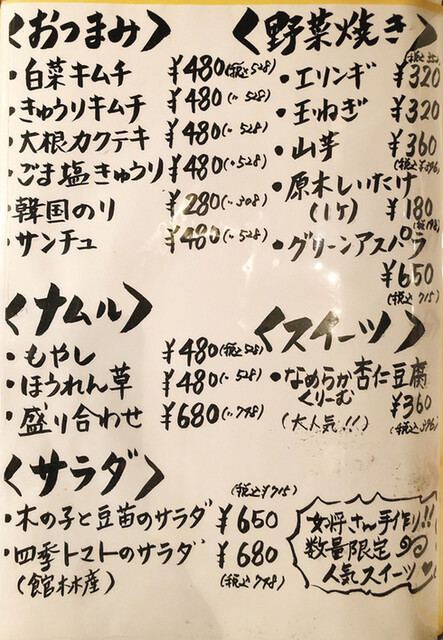 <おつまみ>
・白菜キムチ ¥480(税込528)
・きゅうりキムチ ¥480(〃528)
・大根カクテキ ¥480(〃528)
・ごま塩きゅうり ¥480(〃528)
・韓国のり ¥280(〃308)
・サンチュ ¥480(〃528)
<ナムル>
・もやし ¥480(税込528)
・ほうれん草 ¥480(〃528)
・盛り合わせ ¥680(〃748)
<サラダ>
(税込¥715)
・木の子と豆苗のサラダ ¥650
・四季トマトのサラダ ¥680
(館林産) (税込748)
<野菜焼き>
・エリンギ ¥320
・玉ねぎ ¥320
・山芋 ¥360
(税込396)
・原木しいたけ
(1ケ) ¥180
(税込198)
・グリーンアスパラ
¥650
(税込715)
<スイーツ>
・なめらか杏仁豆腐
くりーむ ¥360
(大人気!!) (税込396)
女将さん手作り!!
数量限定
人気スイーツ♥